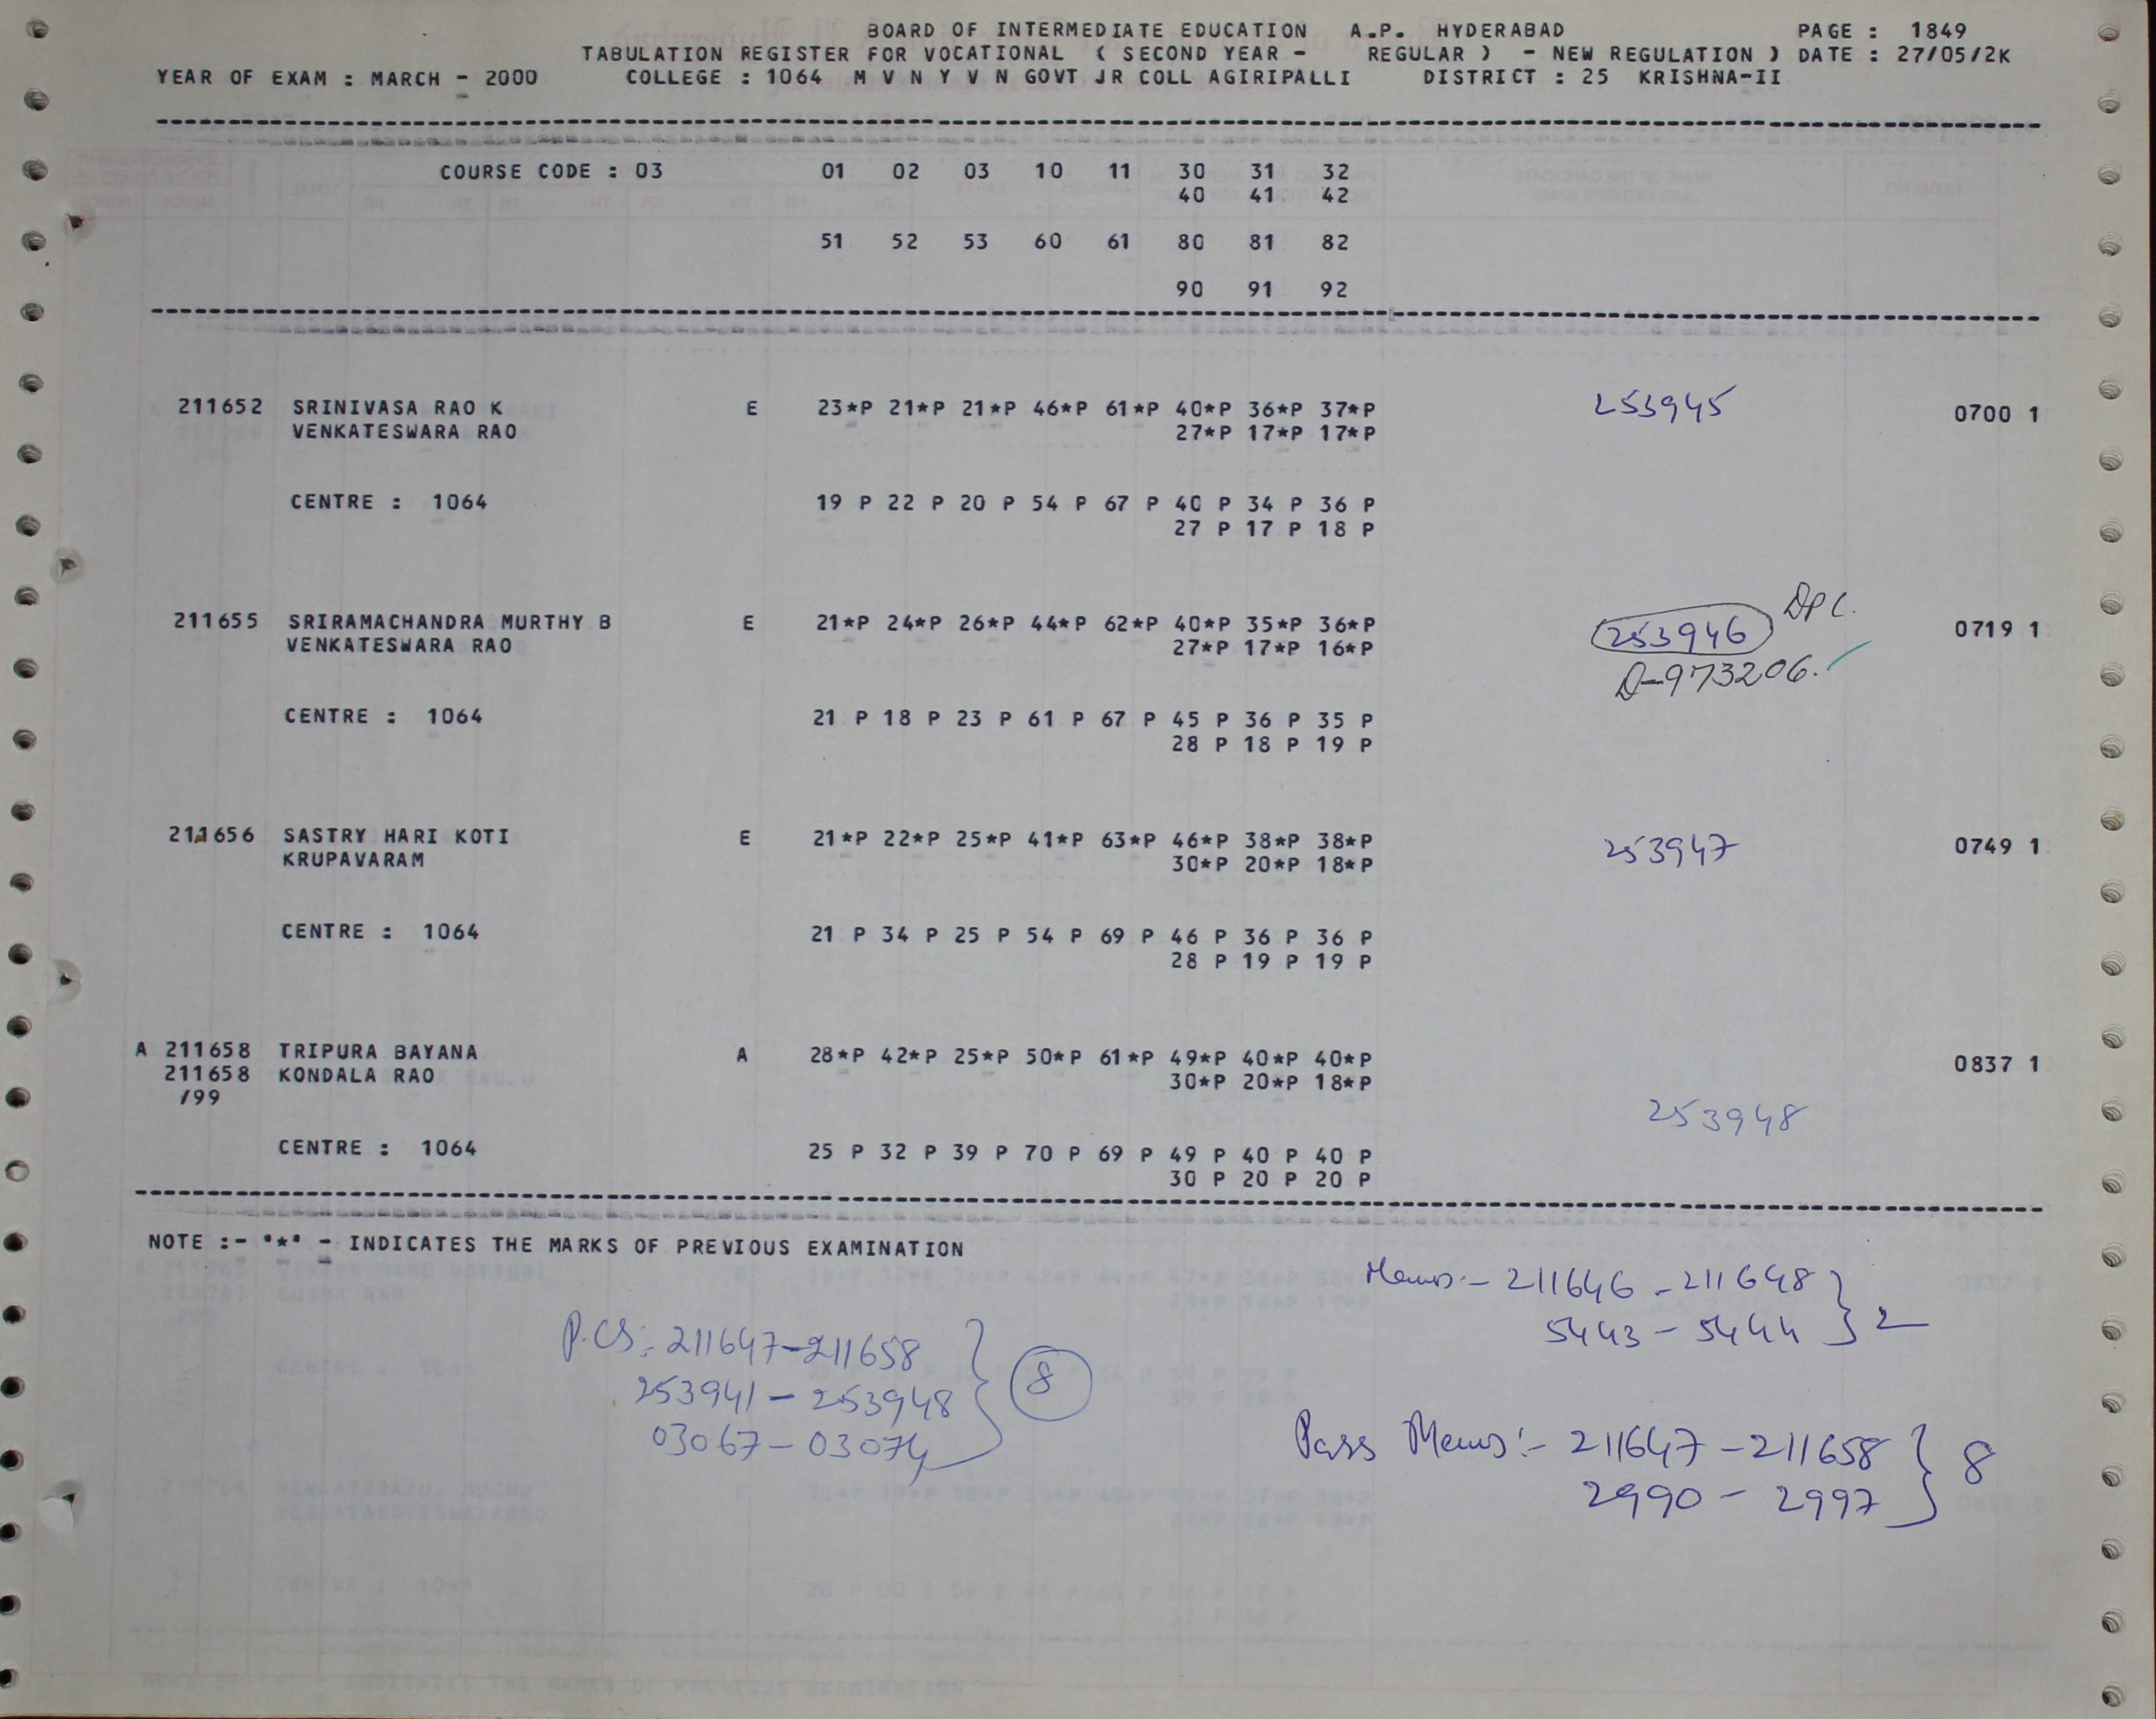 BOARD OF INTERMEDIATE EDUCATION A.P. HYDERABAD PAGE : 1849
TABULATION REGISTER FOR VOCATIONAL ( SECOND YEAR - REGULAR ) - NEW REGULATION ) DATE : 27/05/2K
YEAR OF EXAM : MARCH - 2000 COLLEGE : 1064 M V N Y V N GOVT JR COLL AGIRIPALLI DISTRICT : 25 KRISHNA-II
COURSE CODE : 03 01 02 03 10 11 30 31 32
40 41 42
51 52 53 60 61 80 81 82
90 91 92
211652 SRINIVASA RAO K E 23*P 21*P 21*P 46*P 61*P 40*P 36*P 37*P 253945 0700 1
VENKATESWARA RAO 27*P 17*P 17*P
CENTRE : 1064 19 P 22 P 20 P 54 P 67 P 40 P 34 P 36 P
27 P 17 P 18 P
DPC.
211655 SRIRAMACHANDRA MURTHY B E 21*P 24*P 26*P 44*P 62*P 40*P 35*P 36*P 253946 0719 1
VENKATESWARA RAO 27*P 17*P 16*P
D-973206.
CENTRE : 1064 21 P 18 P 23 P 61 P 67 P 45 P 36 P 35 P
28 P 18 P 19 P
211656 SASTRY HARI KOTI E 21*P 22*P 25*P 41*P 63*P 46*P 38*P 38*P 253947 0749 1
KRUPAVARAM 30*P 20*P 18*P
CENTRE : 1064 21 P 34 P 25 P 54 P 69 P 46 P 36 P 36 P
28 P 19 P 19 P
A 211658 TRIPURA BAYANA A 28*P 42*P 25*P 50*P 61*P 49*P 40*P 40*P 0837 1
211658 KONDALA RAO 30*P 20*P 18*P
/99 253948
CENTRE : 1064 25 P 32 P 39 P 70 P 69 P 49 P 40 P 40 P
30 P 20 P 20 P
NOTE :- "*" - INDICATES THE MARKS OF PREVIOUS EXAMINATION
Memos:- 211646 - 211648
5443 - 5444 } 2
P.CS:- 211647-211658
253941 - 253948 } 8
03067 - 03074
Pass Memos:- 211647 - 211658 } 8
2990 - 2997